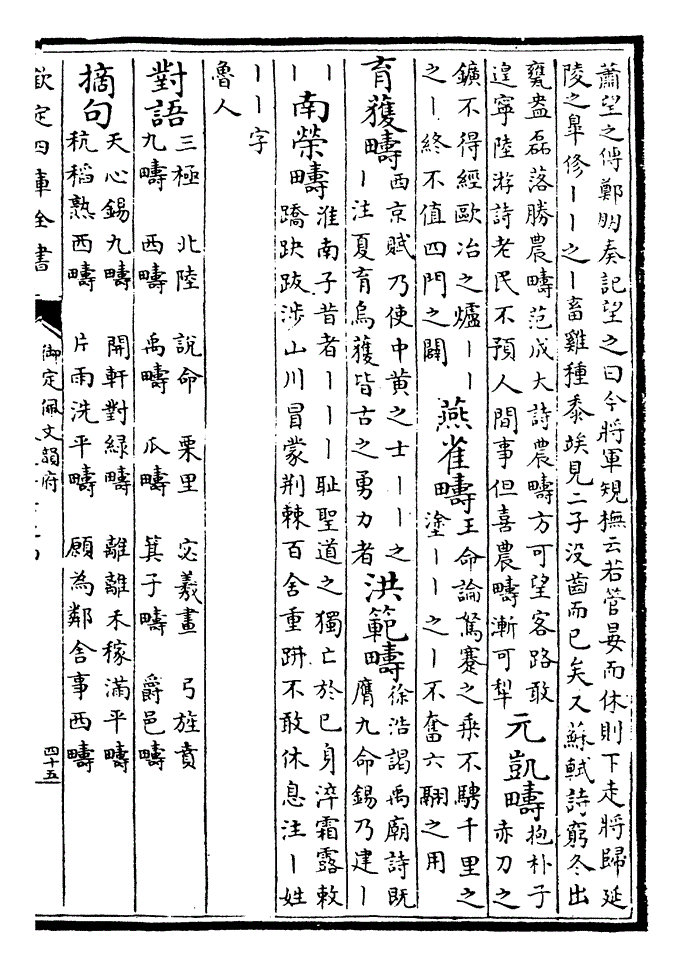 蕭望之傅鄭朋奏記望之曰今將軍規撫云若管晏而休則下走將歸延
陵之臯修丨丨之丨畜雞種黍竢見二子没齒而已矣又蘇軾詩窮冬出
甕盎磊落勝農疇范成大詩農疇方可望客路敢
遑寧陸游詩老民不預人間事但喜農疇漸可犁
元凱疇
抱朴子
赤刀之
鑛不得經歐冶之爐丨丨
之丨終不值四門之闢
燕雀疇
王命論駑蹇之乗不騁千里之
塗丨丨之丨不奮六翮之用
育獲疇
西京賦乃使中黄之士丨丨之
丨注夏育烏獲皆古之勇力者
洪範疇
徐浩謁禹廟詩既
膺九命錫乃建丨
丨
丨
南榮疇
淮南子昔者丨丨丨恥聖道之獨亡於已身淬霜露敕
蹻趹跋涉山川冒蒙荆棘百舍重趼不敢休息注丨姓
丨丨字
魯人
對語
三極 北陸 說命 栗里 宓羲畫 弓旌賁
九疇 西疇 禹疇 瓜疇 箕子疇 爵邑疇
摘句
天心錫九疇 開軒對緑疇 離離禾稼滿平疇
秔稻熟西疇 片雨洗平疇 願為鄰舍事西疇
欽定四庫全書
御定佩文韻府
四十五